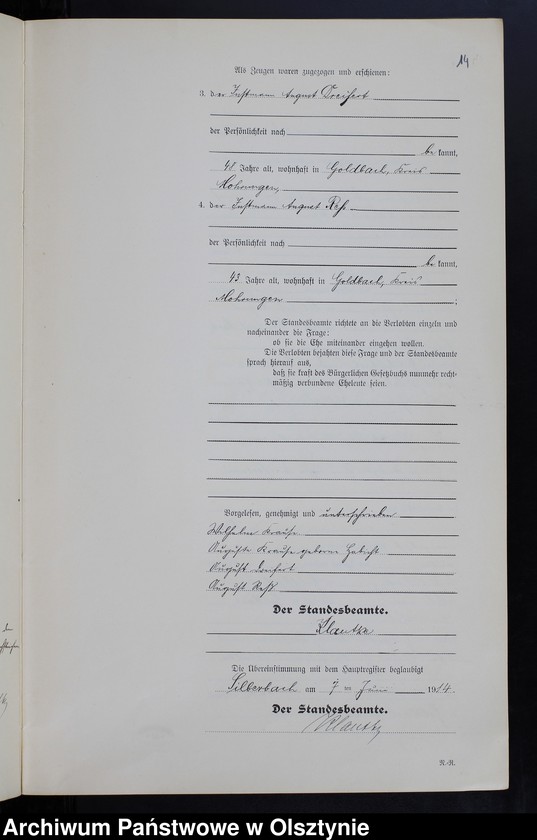 14
Als Zeugen waren zugezogen und erschienen:
3. der Instmann August Dreifert
der Persönlichkeit nach
be kannt,
48 Jahre alt, wohnhaft in Goldbach, Kreis
Mohrungen,
4. der Instmann August Reß
der Persönlichkeit nach
be kannt,
43 Jahre alt, wohnhaft in Goldbach, Kreis
Mohrungen ;
Der Standesbeamte richtete an die Verlobten einzeln und
nacheinander die Frage:
ob sie die Ehe miteinander eingehen wollen.
Die Verlobten bejahten diese Frage und der Standesbeamte
sprach hierauf aus,
daß sie kraft des Bürgerlichen Gesetzbuchs nunmehr recht-
mäßig verbundene Eheleute seien.
Vorgelesen, genehmigt und unterschrieben
Wilhelm Krause
Auguste Krause geborne Habicht
August Dreifert
August Reß
Der Standesbeamte.
Klautke
Die Übereinstimmung mit dem Hauptregister beglaubigt
Silberbach am 7 ten Juni 1914.
Der Standesbeamte.
Klautke
N.-R.
Archiwum Państwowe w Olsztynie